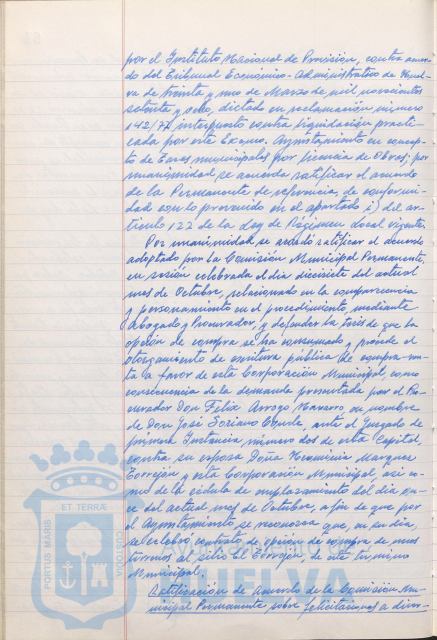 por el Instituto Nacional de Previsión, contra acuer-
do del Tribunal Económico-Administrativo de Huel-
va de treinta y uno de Marzo de mil novecientos
setenta y ocho, dictado en reclamación número
142/77 interpuesto contra liquidación practi-
cada por este Excmo. Ayuntamiento en concep-
to de Tasas municipales por licencia de Obras; por
unanimidad se acuerda ratificar el acuerdo
de la Permanente de referencia, de conformi-
dad con lo prevenido en el apartado i) del ar-
tículo 122 de la Ley de Régimen Local vigente.
Por unanimidad se acordó ratificar el acuerdo
adoptado por la Comisión Municipal Permanente,
en sesión celebrada el día diecisiete del actual
mes de Octubre, relacionado en la comparecencia
y personamiento en el procedimiento, mediante
Abogado y Procurador, y defender la tesis de que la
opción de compra se ha consumado y procede el
otorgamiento de escritura pública de compra-ven-
ta a favor de esta Corporación Municipal, como
consecuencia de la demanda presentada por el Pro-
curador Don Felix Arroyo Navarro en nombre
de Don José Soriano Conde, ante el Juzgado de
primera Instancia, número dos de esta Capital,
contra su esposa Doña Marquez
Terrejón y esta Corporación Municipal, así co-
mo de la cédula de emplazamiento del día on-
ce del actual mes de Octubre, a fin de que por
el Ayuntamiento se reconozca que, en su día,
se celebró contrato de opción de compra de unos
terrenos al sitio El Torrejón, de este término
Municipal.
Ratificación de Acuerdo de la Comisión Mu-
nicipal Permanente sobre felicitaciones a diver-
PORTUS MARIS
ET TERRÆ
CUSTODIA
HUELVA